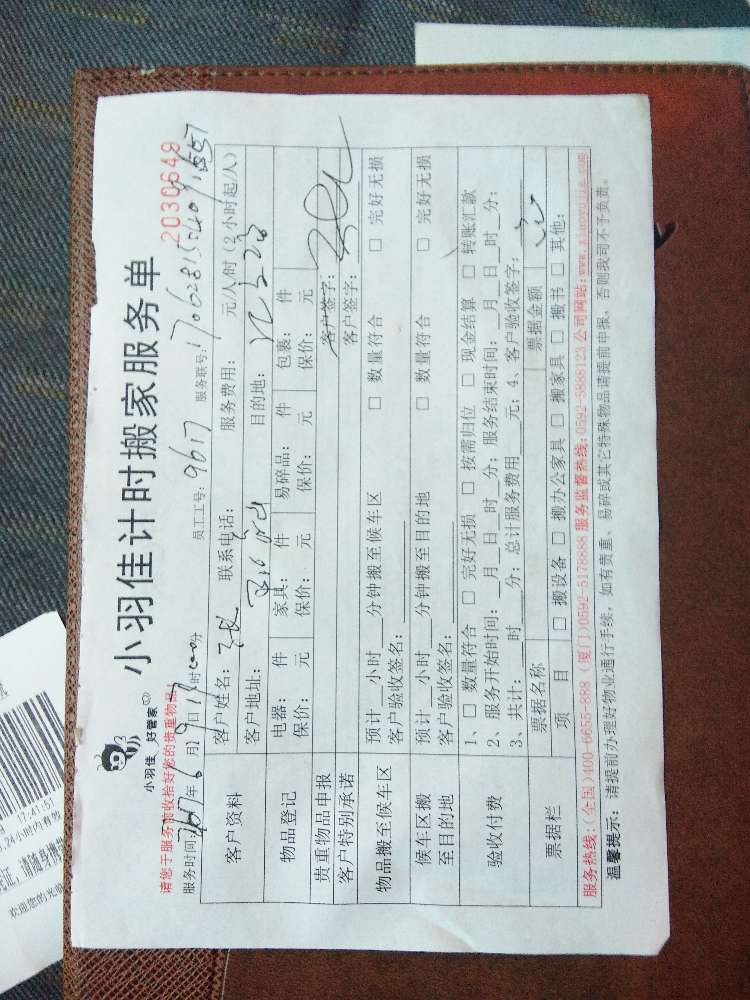 小羽佳计时搬家服务单
小羽佳 好管家
2030649
请您于服务前收拾好您的贵重物品
服务时间: 2017年 6 月 9 日 时 分 员工工号: 9617 服务联号:
客户资料
客户姓名: 联系电话: 服务费用: 元/人/时 (2小时起/人)
客户地址: 目的地:
物品登记
电器: 件 家具: 件 易碎品: 件 包裹: 件
保价: 元 保价: 元 保价: 元 保价: 元
贵重物品申报 客户签字:
客户特别承诺 客户签字:
物品搬至候车区
预计__小时__分钟搬至候车区 □ 数量符合 □ 完好无损
客户验收签名:
候车区搬
至目的地
预计__小时__分钟搬至目的地 □ 数量符合 □ 完好无损
客户验收签名:
验收付费
1、□ 数量符合 □ 完好无损 □ 按需归位 □ 现金结算 □ 转账汇款
2、服务开始时间:__月__日__时__分; 服务结束时间:__月__日__时__分;
3、共计:__时__分; 总计服务费用__元; 4、客户验收签字:
票据栏
票据名称 票据金额
项 目 □ 搬设备 □ 搬办公家具 □ 搬家具 □ 搬书 □ 其他:
服务热线:(全国)400-6655-888 (厦门)0592-5178888 服务监督热线:0592-5888123 公司网站:www.xiaoyujia.com
温馨提示: 请提前办理好物业通行手续, 如有贵重、易碎或其它特殊物品请提前申报, 否则我司不予负责。
17:41:51
24小时内有效
请随身携
欢迎您的光